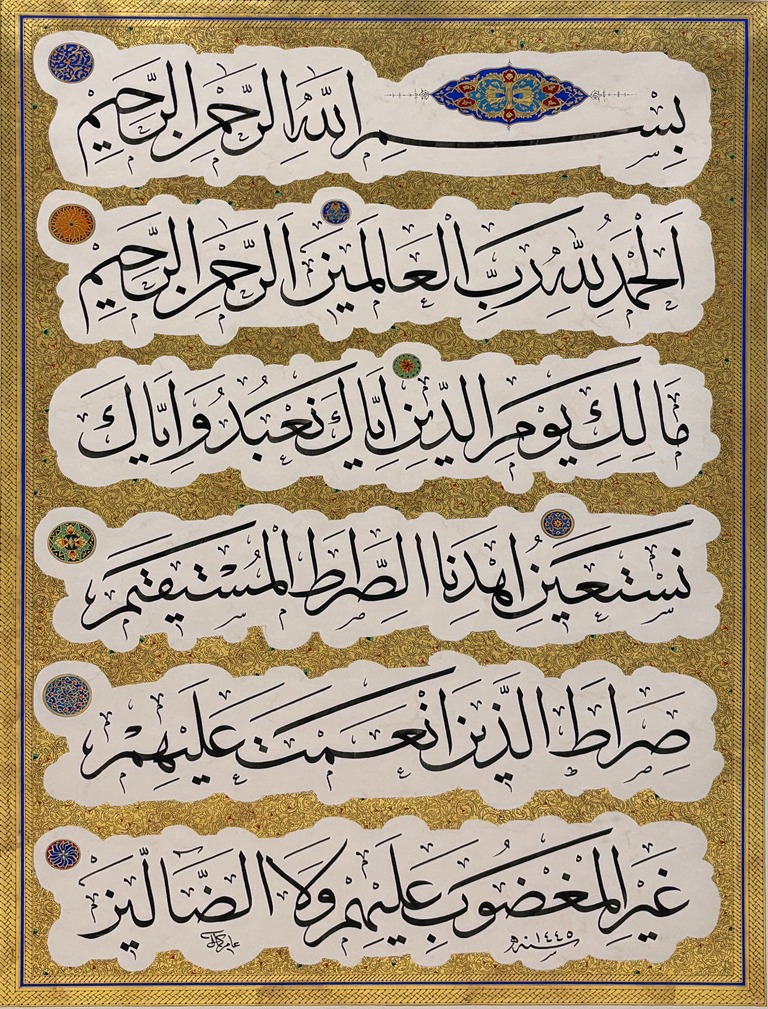 بِسْمِ اللّٰهِ الرَّحْمٰنِ الرَّحِيمِ
اَلْحَمْدُ لِلّٰهِ رَبِّ الْعَالَمِينَ اَلرَّحْمٰنِ الرَّحِيمِ
مَالِكِ يَوْمِ الدِّينِ اِيَّاكَ نَعْبُدُ وَاِيَّاكَ
نَسْتَعِينُ اِهْدِنَا الصِّرَاطَ الْمُسْتَقِيمَ
صِرَاطَ الَّذِينَ اَنْعَمْتَ عَلَيْهِمْ
غَيْرِ الْمَغْضُوبِ عَلَيْهِمْ وَلَا الضَّالِّينَ
سنة ١٤٤٥